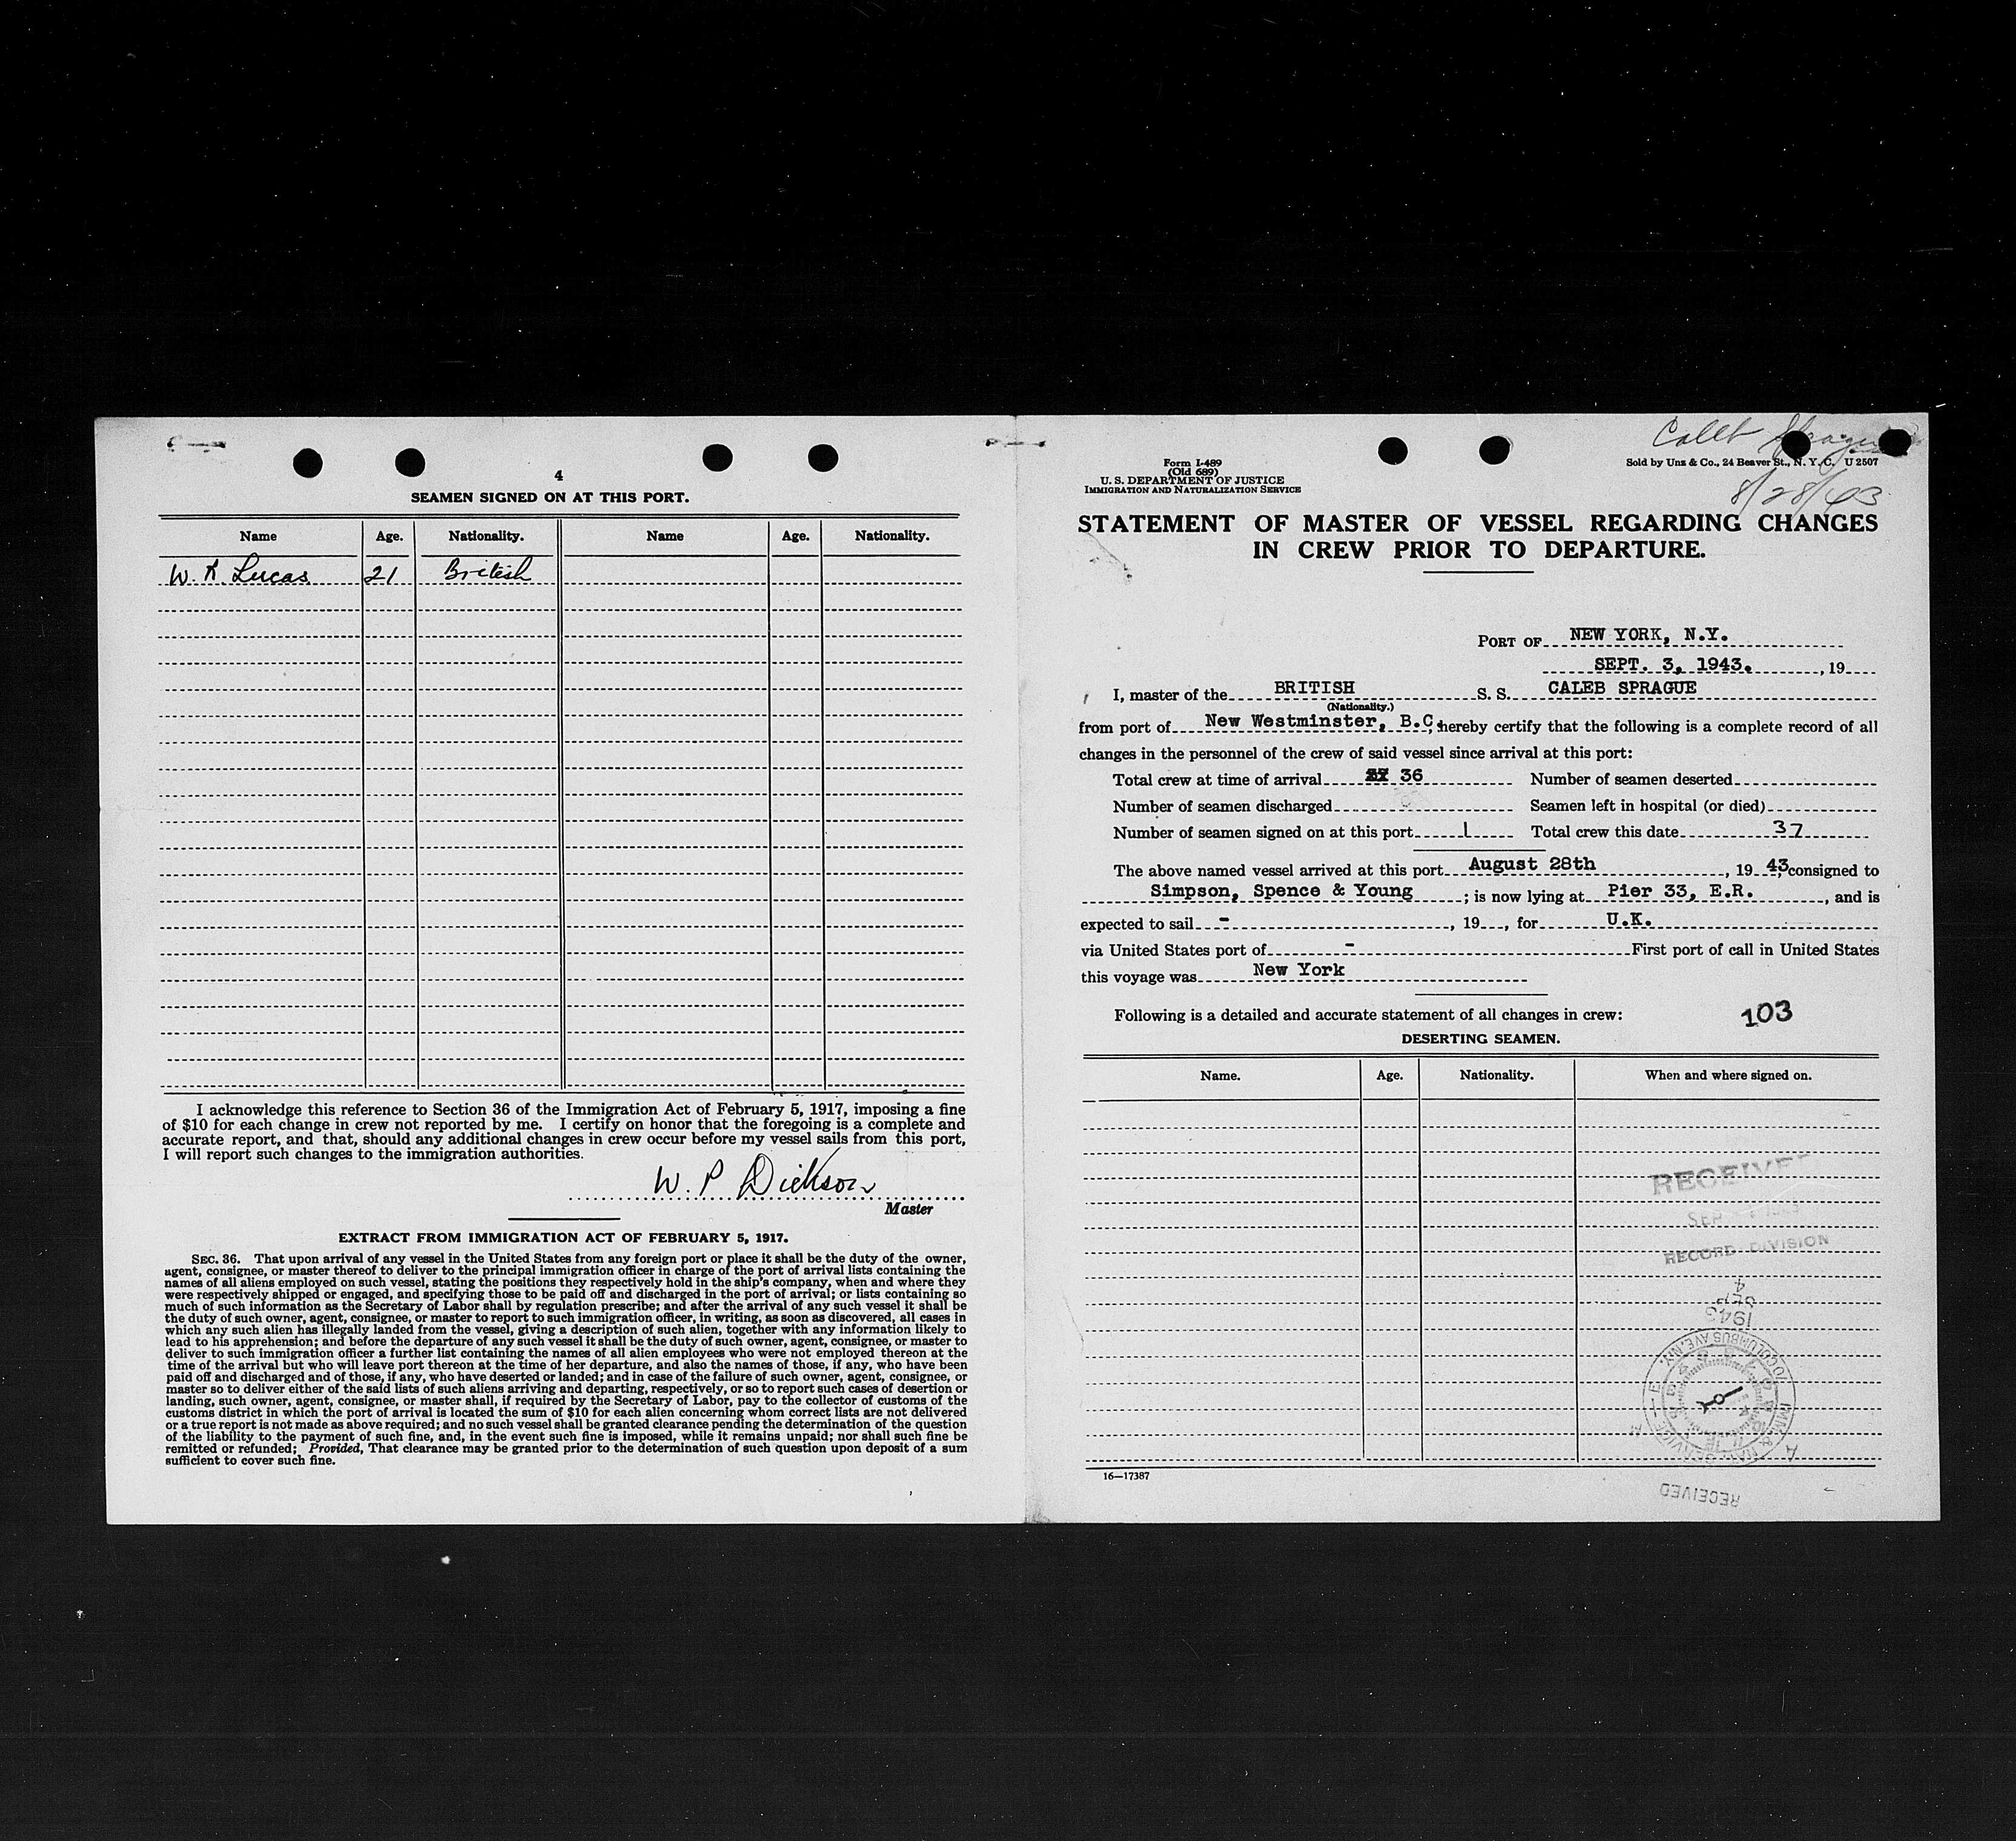 4
SEAMEN SIGNED ON AT THIS PORT.
Name Age. Nationality. Name Age. Nationality.
W. K. Lucas 21 British
I acknowledge this reference to Section 36 of the Immigration Act of February 5, 1917, imposing a fine
of $10 for each change in crew not reported by me. I certify on honor that the foregoing is a complete and
accurate report, and that, should any additional changes in crew occur before my vessel sails from this port,
I will report such changes to the immigration authorities.
W. P. Dickson
Master
EXTRACT FROM IMMIGRATION ACT OF FEBRUARY 5, 1917.
SEC. 36. That upon arrival of any vessel in the United States from any foreign port or place it shall be the duty of the owner,
agent, consignee, or master thereof to deliver to the principal immigration officer in charge of the port of arrival lists containing the
names of all aliens employed on such vessel, stating the positions they respectively hold in the ship's company, when and where they
were respectively shipped or engaged, and specifying those to be paid off and discharged in the port of arrival; or lists containing so
much of such information as the Secretary of Labor shall by regulation prescribe; and after the arrival of any such vessel it shall be
the duty of such owner, agent, consignee, or master to report to such immigration officer, in writing, as soon as discovered, all cases in
which any such alien has illegally landed from the vessel, giving a description of such alien, together with any information likely to
lead to his apprehension; and before the departure of any such vessel it shall be the duty of such owner, agent, consignee, or master to
deliver to such immigration officer a further list containing the names of all alien employees who were not employed thereon at the
time of the arrival but who will leave port thereon at the time of her departure, and also the names of those, if any, who have been
paid off and discharged and of those, if any, who have deserted or landed; and in case of the failure of such owner, agent, consignee, or
master so to deliver either of the said lists of such aliens arriving and departing, respectively, or so to report such cases of desertion or
landing, such owner, agent, consignee, or master shall, if required by the Secretary of Labor, pay to the collector of customs of the
customs district in which the port of arrival is located the sum of $10 for each alien concerning whom correct lists are not delivered
or a true report is not made as above required; and no such vessel shall be granted clearance pending the determination of the question
of the liability to the payment of such fine, and, in the event such fine is imposed, while it remains unpaid; nor shall such fine be
remitted or refunded; Provided, That clearance may be granted prior to the determination of such question upon deposit of a sum
sufficient to cover such fine.
Caleb Sprague
Form I-489
(Old 689)
U. S. DEPARTMENT OF JUSTICE
IMMIGRATION AND NATURALIZATION SERVICE
Sold by Unz & Co., 24 Beaver St., N. Y. C. U 2507
8/28/43
STATEMENT OF MASTER OF VESSEL REGARDING CHANGES
IN CREW PRIOR TO DEPARTURE.
PORT OF NEW YORK, N.Y.
SEPT. 3, 1943. , 19
I, master of the BRITISH S. S. CALEB SPRAGUE
(Nationality.)
from port of New Westminster, B.C, hereby certify that the following is a complete record of all
changes in the personnel of the crew of said vessel since arrival at this port:
Total crew at time of arrival 36 Number of seamen deserted
Number of seamen discharged Seamen left in hospital (or died)
Number of seamen signed on at this port 1 Total crew this date 37
The above named vessel arrived at this port August 28th , 19 43, consigned to
Simpson, Spence & Young ; is now lying at Pier 33, E.R. , and is
expected to sail - , 19 , for U.K.
via United States port of - First port of call in United States
this voyage was New York
Following is a detailed and accurate statement of all changes in crew: 103
DESERTING SEAMEN.
Name. Age. Nationality. When and where signed on.
RECEIVED
SEP 1943
RECORD DIVISION
SEP 4
1943
COLUMBUS AVE. N.Y.
RECEIVED
16—17387